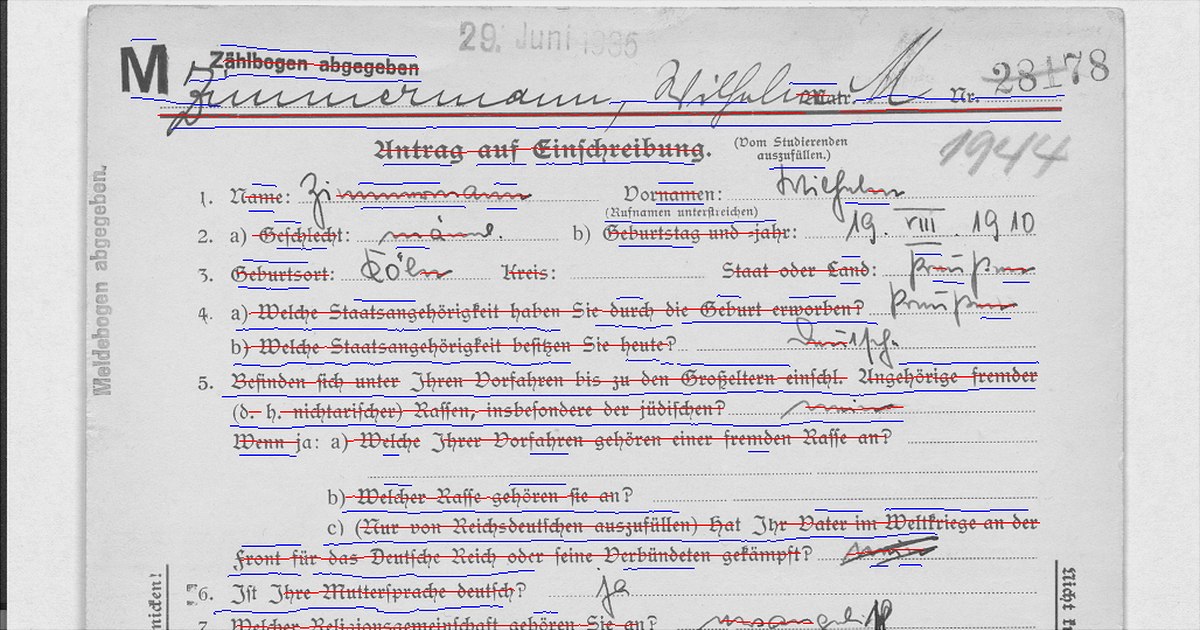 29. Juni 1935
M Zählbogen abgegeben
Zimmermann, Wilhelm Matr. M Nr. 28178
Antrag auf Einschreibung. (Vom Studierenden auszufüllen.)
1944
1. Name: Zimmermann Vornamen: Wilhelm
(Rufnamen unterstreichen)
2. a) Geschlecht: männl. b) Geburtstag und -jahr: 19. VIII. 1910
3. Geburtsort: Köln Kreis: Staat oder Land: Preußen
4. a) Welche Staatsangehörigkeit haben Sie durch die Geburt erworben? Preußen
b) Welche Staatsangehörigkeit besitzen Sie heute? Deutsch.
5. Befinden sich unter Ihren Vorfahren bis zu den Großeltern einschl. Angehörige fremder
(d. h. nichtarischer) Rassen, insbesondere der jüdischen? nein
Wenn ja: a) Welche Ihrer Vorfahren gehören einer fremden Rasse an?
b) Welcher Rasse gehören sie an?
c) (Nur von Reichsdeutschen auszufüllen) Hat Ihr Vater im Weltkriege an der
Front für das Deutsche Reich oder seine Verbündeten gekämpft? nein
6. Ist Ihre Muttersprache deutsch? ja
7. Welcher Religionsgemeinschaft gehören Sie an?
Meldebogen abgegeben.
Nicht